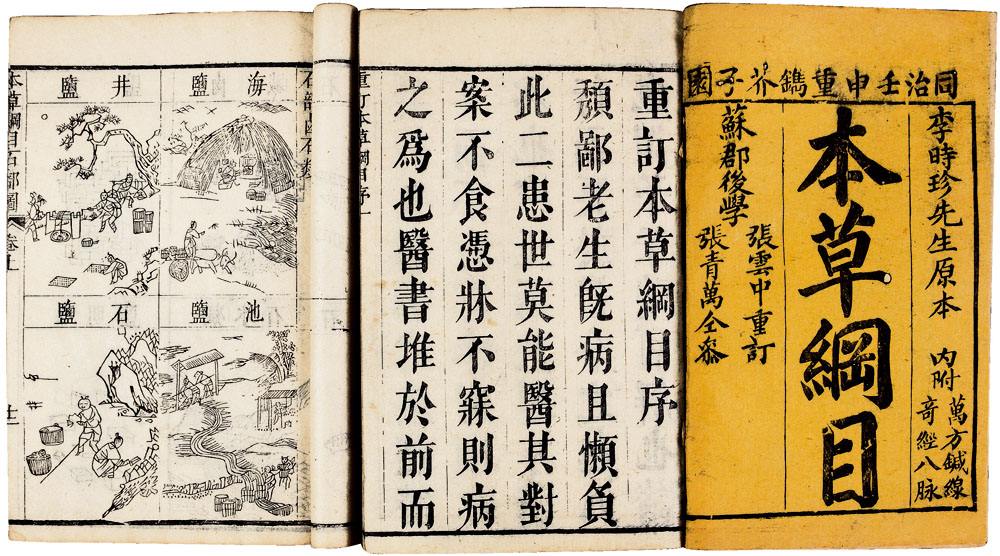 同治壬申重鐫芥子園
李時珍先生原本
內附
萬方鍼線
奇經八脉
本草綱目
蘇郡後學
張雲中重訂
張青萬仝叅
重訂本草綱目序
頽鄙老生旣病且懶負
此二患世莫能醫其對
案不食憑牀不寐則病
之爲也醫書堆於前而
重訂本草綱目序
石部鹵石類
海鹽
井鹽
池鹽
石鹽
本草綱目石部圖